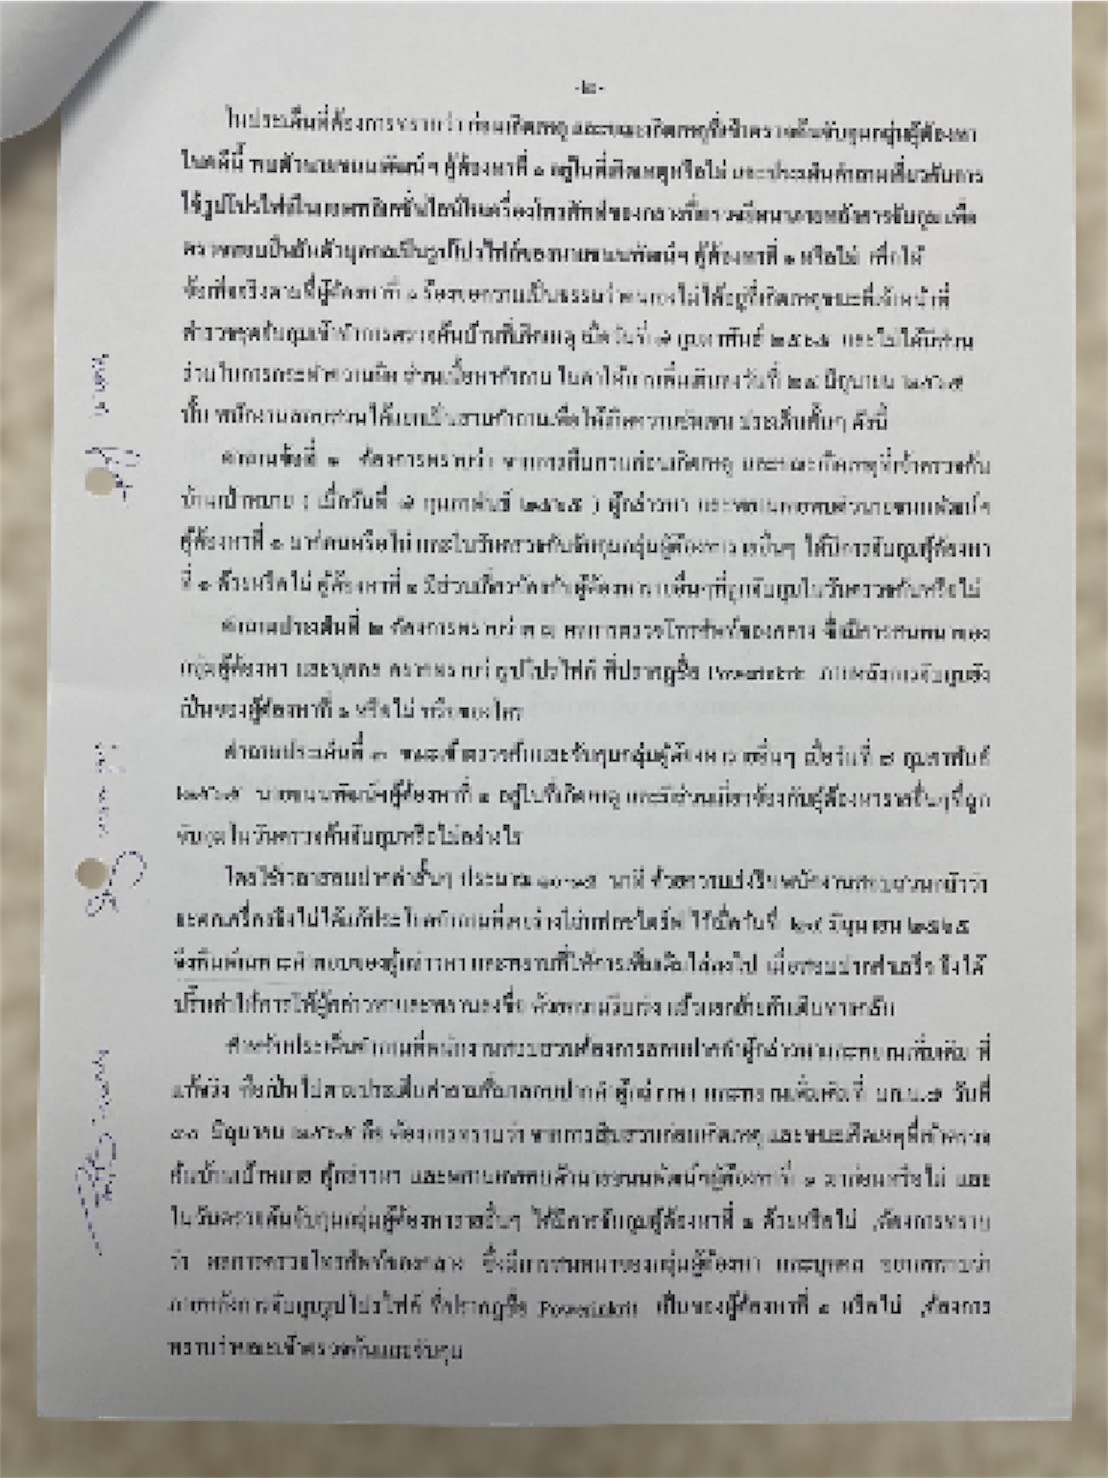 -๒-
ในประเด็นที่ต้องการทราบว่า ก่อนเกิดเหตุ และขณะเกิดเหตุที่เข้าตรวจค้นจับกุมกลุ่มผู้ต้องหา
ในคดีนี้ พบตัวนายชนนพัฒน์ฯ ผู้ต้องหาที่ ๑ อยู่ในที่เกิดเหตุหรือไม่ และประเด็นคำถามเกี่ยวกับการ
ใช้รูปโปรไฟล์ในแอพพลิเคชั่นไลน์ในเครื่องโทรศัพท์ของกลางที่ตรวจยึดมาภายหลังการจับกุม เพื่อ
ตรวจสอบยืนยันตัวบุคคลเป็นรูปโปรไฟล์ของนายชนนพัฒน์ฯ ผู้ต้องหาที่ ๑ หรือไม่ เพื่อให้
ข้อเท็จจริงตามที่ผู้ต้องหาที่ ๑ ร้องขอความเป็นธรรมว่าตนเองไม่ได้อยู่ที่เกิดเหตุขณะที่เจ้าหน้าที่
ตำรวจชุดจับกุมเข้าทำการตรวจค้นบ้านที่เกิดเหตุ เมื่อวันที่ กุมภาพันธ์ ๒๕๖๕ และไม่ได้มีส่วน
ร่วมในการกระทำความผิด ส่วนเนื้อหาคำถาม ในคำให้การเพิ่มเติมลงวันที่ มิถุนายน ๒๕๖๕
นั้น พนักงานสอบสวนได้แยกเป็นสามคำถามเพื่อให้เกิดความชัดเจน ประเด็นสั้นๆ ดังนี้
คำถามข้อที่ ๑ ต้องการทราบว่า จากการสืบสวนก่อนเกิดเหตุ และขณะเกิดเหตุที่เข้าตรวจค้น
บ้านเป้าหมาย ( เมื่อวันที่ กุมภาพันธ์ ๒๕๖๕ ) ผู้กล่าวหา และพยานเคยพบตัวนายชนนพัฒน์ฯ
ผู้ต้องหาที่ ๑ มาก่อนหรือไม่ และในวันตรวจค้นจับกุมกลุ่มผู้ต้องหารายอื่นๆ ได้มีการจับกุมผู้ต้องหา
ที่ ๑ ด้วยหรือไม่ ผู้ต้องหาที่ ๑ มีส่วนเกี่ยวข้องกับผู้ต้องหารายอื่นๆที่ถูกจับกุมในวันตรวจค้นหรือไม่
คำถามประเด็นที่ ๒ ต้องการทราบว่า ผลการตรวจโทรศัพท์ของกลาง ซึ่งมีการสนทนาของ
กลุ่มผู้ต้องหา และบุคคล ตรวจทราบว่า รูปโปรไฟล์ ที่ปรากฏชื่อ ภายหลังการจับกุมจึง
เป็นของผู้ต้องหาที่ ๑ หรือไม่ หรือของใคร
คำถามประเด็นที่ ๓ ขณะเข้าตรวจค้นและจับกุมกลุ่มผู้ต้องหารายอื่นๆ เมื่อวันที่ กุมภาพันธ์
๒๕๖๕ นายชนนพัฒน์ฯผู้ต้องหาที่ ๑ อยู่ในที่เกิดเหตุ และมีส่วนเกี่ยวข้องกับผู้ต้องหารายอื่นๆที่ถูก
จับกุมในวันตรวจค้นจับกุมหรือไม่อย่างไร
โดยใช้เวลาสอบปากคำสั้นๆ ประมาณ ๑๐-๑๕ นาที ด้วยความเร่งรีบพนักงานสอบสวน
ไว้เมื่อวันที่ มิถุนายน ๒๕๖๕
จึงพิมพ์เฉพาะคำตอบของผู้กล่าวหา และพยานที่ให้การเพิ่มเติมใส่ลงไป เมื่อสอบปากคำเสร็จ จึงได้
ปริ้นคำให้การให้ผู้กล่าวหาและพยานลงชื่อ ด้วยความรีบเร่ง แล้วแยกย้ายกันเดินทางกลับ
สำหรับประเด็นคำถามที่พนักงานสอบสวนต้องการสอบปากคำผู้กล่าวหาและพยานเพิ่มเติม ที่
แท้จริง คือเป็นไปตามประเด็นคำถามที่มาสอบปากคำผู้กล่าวหา และพยานเพิ่มเติมที่ วันที่
มิถุนายน ๒๕๖๕ คือ ต้องการทราบว่า จากการสืบสวนก่อนเกิดเหตุ และขณะเกิดเหตุที่เข้าตรวจ
ค้นบ้านเป้าหมาย ผู้กล่าวหา และพยานเคยพบตัวนายชนนพัฒน์ฯผู้ต้องหาที่ ๑ มาก่อนหรือไม่ และ
ในวันตรวจค้นจับกุมกลุ่มผู้ต้องหารายอื่นๆ ได้มีการจับกุมผู้ต้องหาที่ ๑ ด้วยหรือไม่ ,ต้องการทราบ
ว่า ผลการตรวจโทรศัพท์ของกลาง ซึ่งมีการสนทนาของกลุ่มผู้ต้องหา และบุคคล
ภายหลังการจับกุมรูปโปรไฟล์ ที่ปรากฏชื่อ เป็นของผู้ต้องหาที่ ๑ หรือไม่ ,ต้องการ
ทราบว่าขณะเข้าตรวจค้นและจับกุม